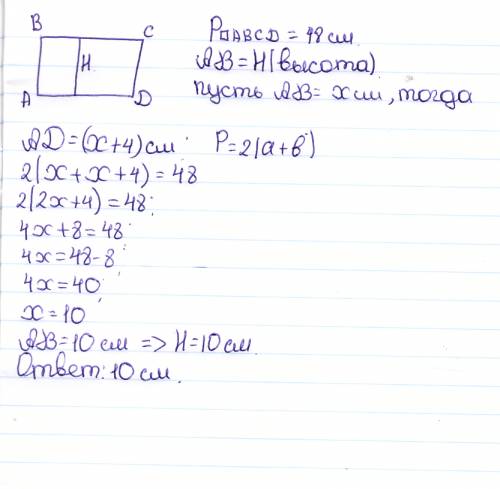 B C
H
A D
P□ABCD = 48 см
AB = H (высота)
пусть AB = x см, тогда
AD = (x+4) см. P = 2(a+b)
2(x+x+4) = 48
2(2x+4) = 48;
4x+8 = 48;
4x = 48-8;
4x = 40;
x = 10;
AB = 10 см => H = 10 см.
Ответ: 10 см.